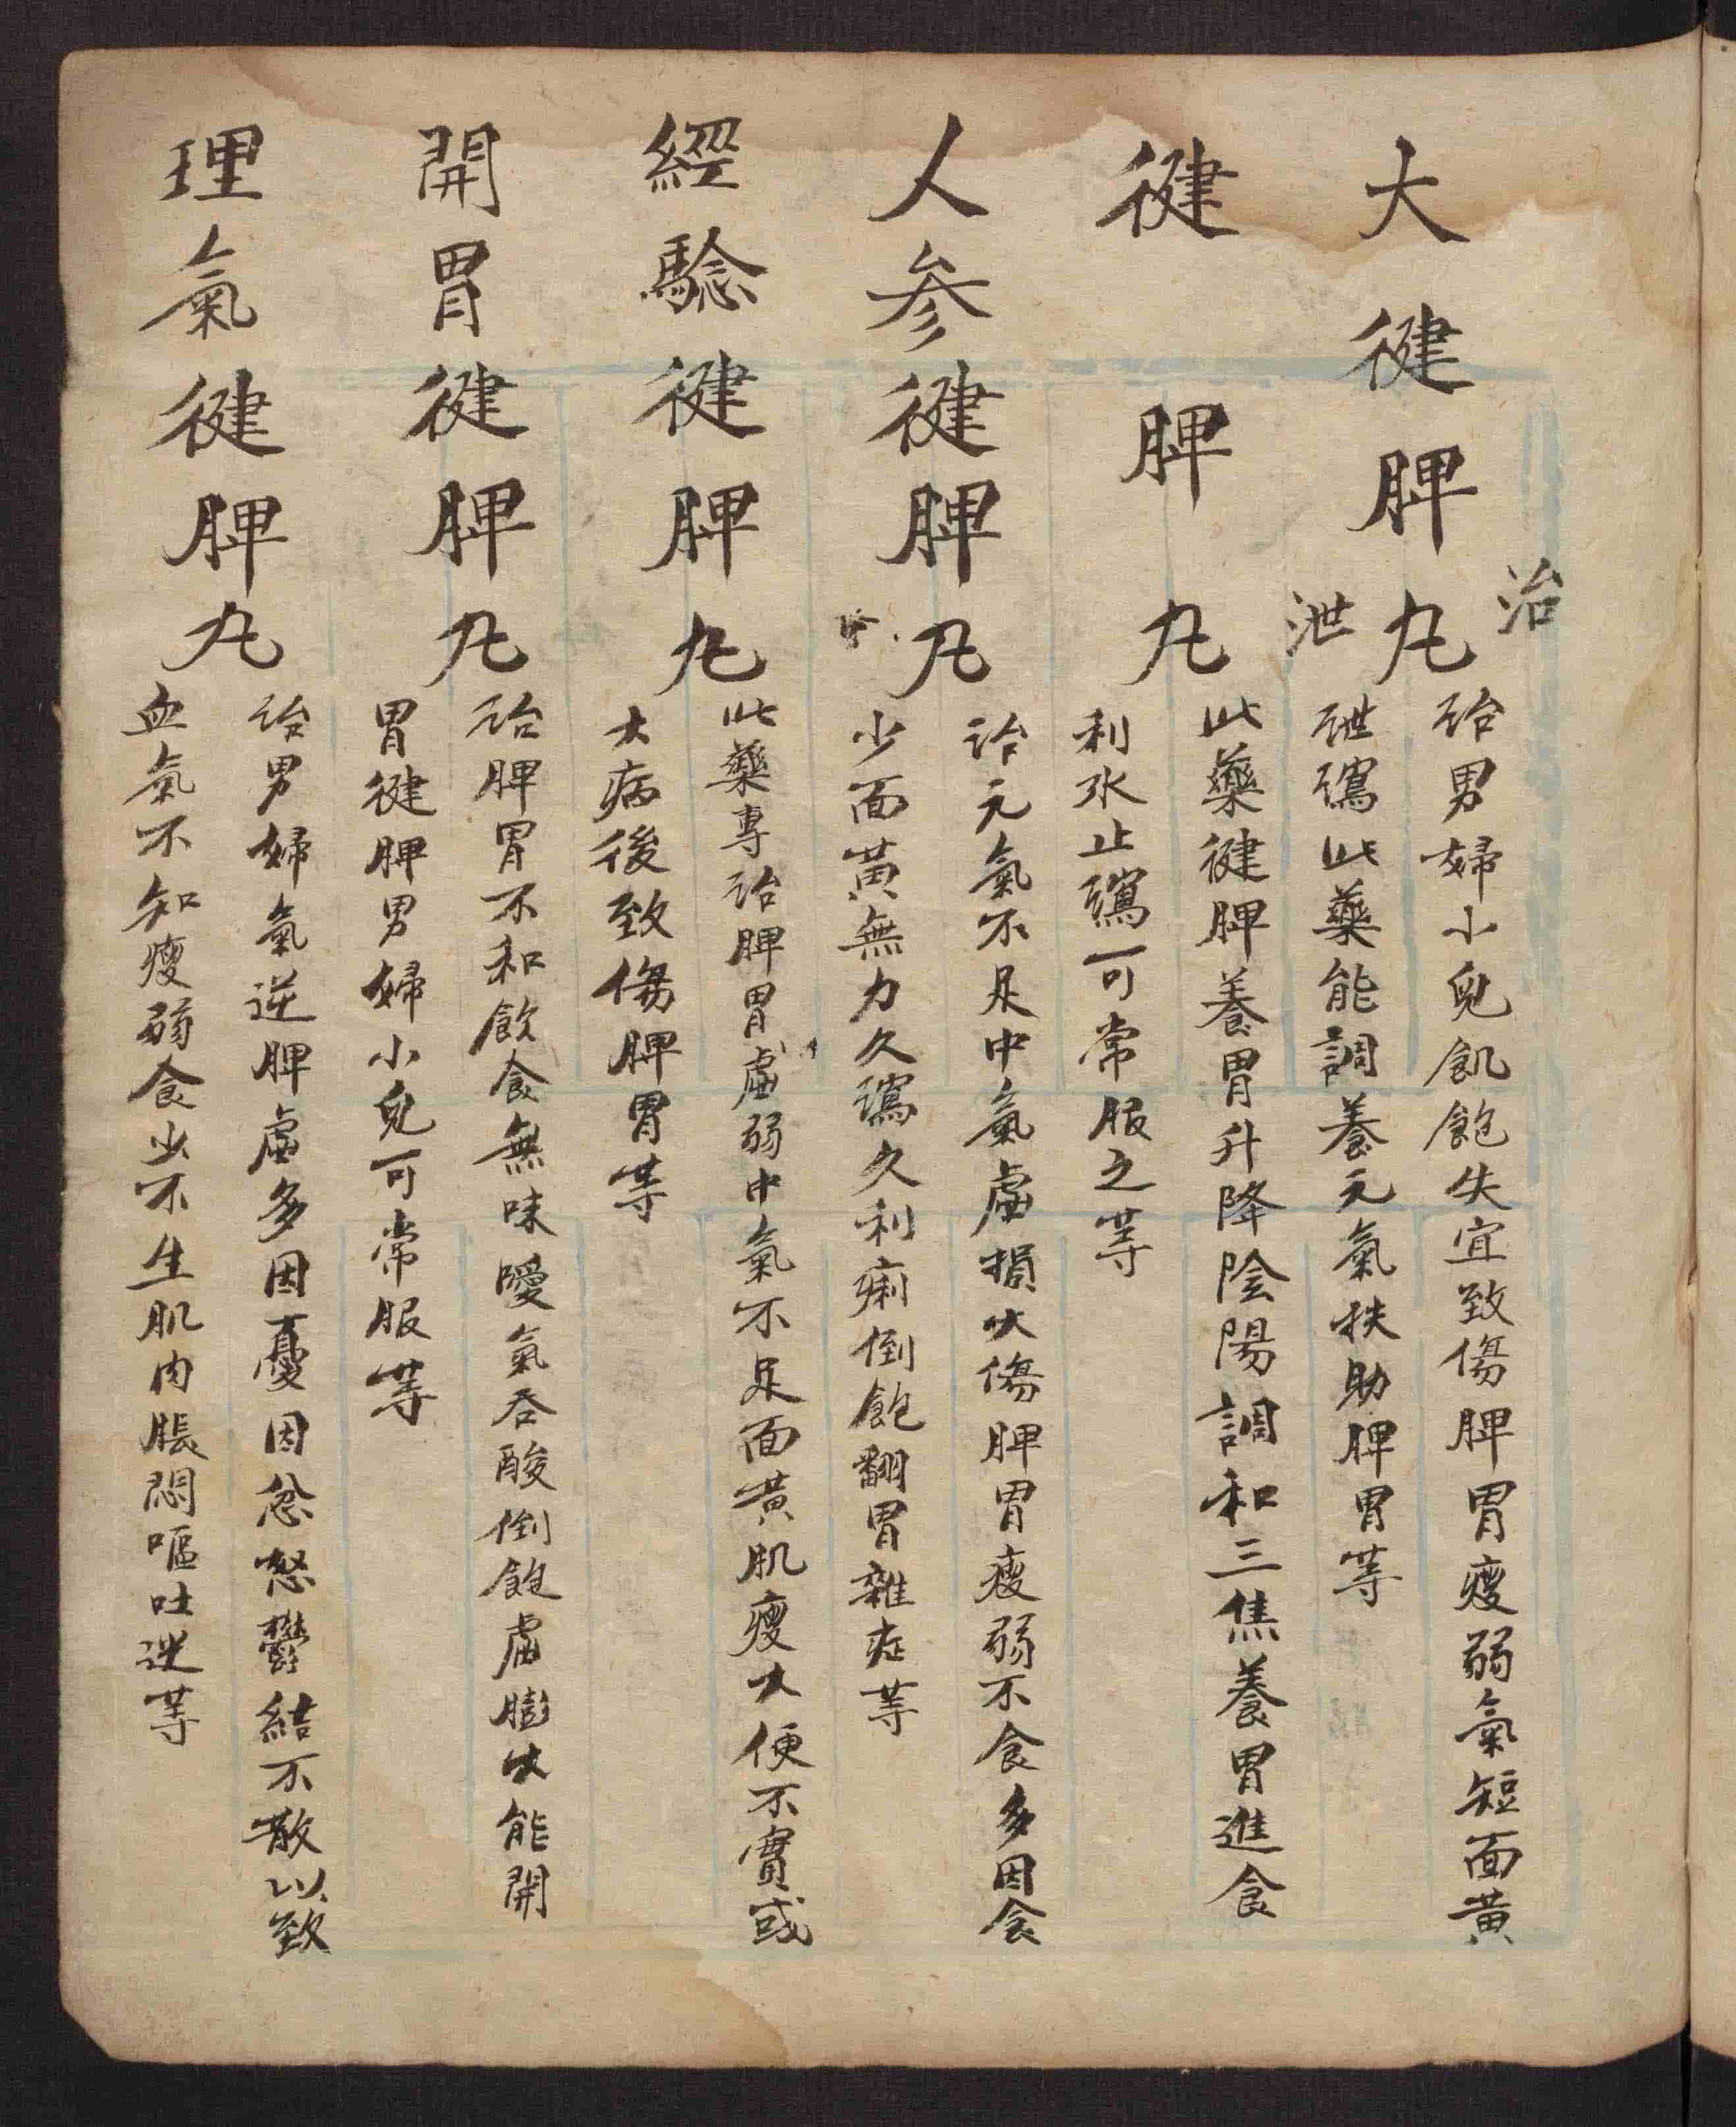 大徤脾丸
治
詒男婦小兒飢飽失宜致傷脾胃瘦弱氣短面黄
泄
詍瀉此藥能調養元氣扶助脾胃等
徤脾丸
此藥徤脾養胃升降陰陽調和三焦養胃進食
利水止瀉可常服之等
人参徤脾丸
詒元氣不足中氣虛損大傷脾胃瘦弱不食多因食
少面黄無力久瀉久利痢倒飽翻胃雜症等
經騐徤脾丸
此藥專詒脾胃虛弱中氣不足面黄肌瘦大便不實或
大病後致傷脾胃等
開胃徤脾丸
詒脾胃不和飲食無味噯氣吞酸倒飽虛膨大能開
胃徤脾男婦小兒可常服等
理氣徤脾丸
詒男婦氣逆脾虛多因憂因忿怒鬱結不散以致
血氣不知瘦弱食少不生肌肉脹悶嘔吐逆等